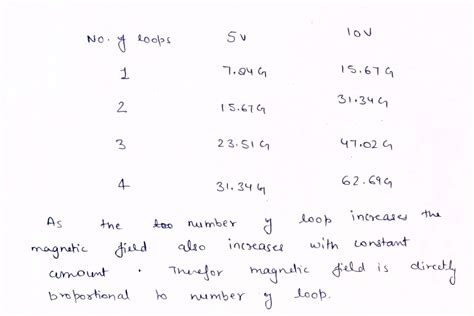 No. of loops 5V 10V
1 7.84 G 15.67 G
2 15.67 G 31.34 G
3 23.51 G 47.02 G
4 31.34 G 62.69 G
As the number of loop increases the
magnetic field also increases with constant
amount. Therefor magnetic field is directly
proportional to number of loop.